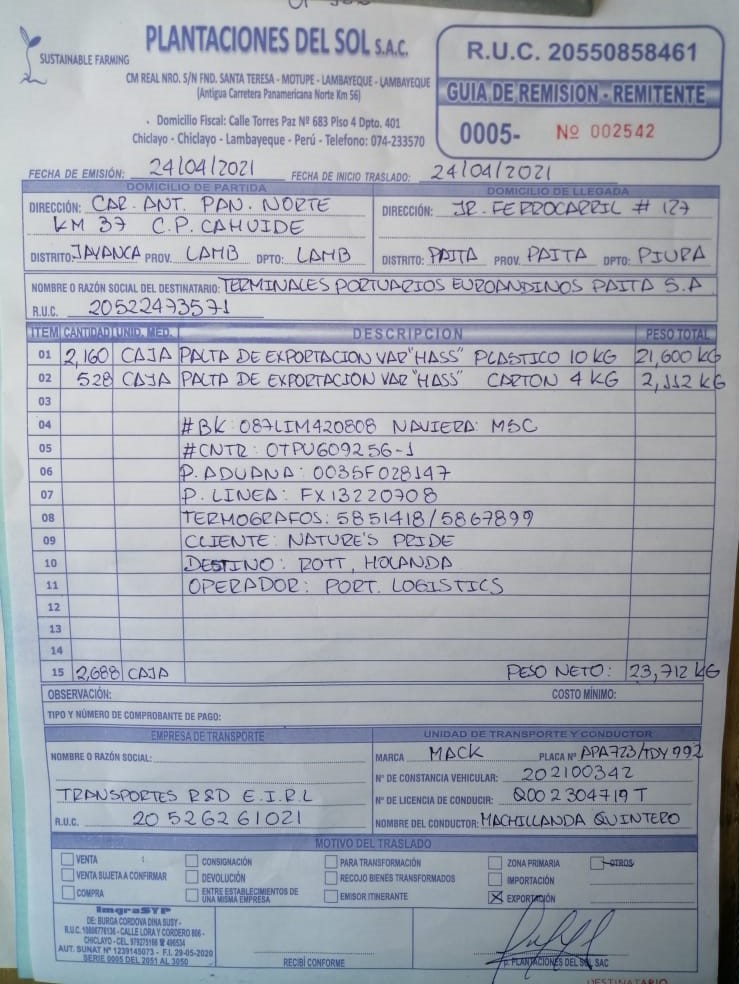 SUSTAINABLE FARMING
PLANTACIONES DEL SOL S.A.C.
CM REAL NRO. S/N FND. SANTA TERESA - MOTUPE - LAMBAYEQUE - LAMBAYEQUE
(Antigua Carretera Panamericana Norte Km 56)
Domicilio Fiscal: Calle Torres Paz Nº 683 Piso 4 Dpto. 401
Chiclayo - Chiclayo - Lambayeque - Perú - Telefono: 074-233570
R.U.C. 20550858461
GUIA DE REMISION - REMITENTE
0005- Nº 002542
FECHA DE EMISIÓN: 24/04/2021 FECHA DE INICIO TRASLADO: 24/04/2021
DOMICILIO DE PARTIDA
DIRECCIÓN: CAR. ANT. PAN. NORTE
KM 37 C.P. CAHUIDE
DISTRITO: JAYANCA PROV. LAMB DPTO: LAMB
DOMICILIO DE LLEGADA
DIRECCIÓN: JR. FERROCARRIL # 127
DISTRITO: PAITA PROV. PAITA DPTO: PIURA
NOMBRE O RAZÓN SOCIAL DEL DESTINATARIO: TERMINALES PORTUARIOS EUROANDINOS PAITA S.A
R.U.C. 20522473571
ITEM CANTIDAD UNID. MED. DESCRIPCION PESO TOTAL
01 2,160 CAJA PALTA DE EXPORTACION VAR "HASS" PLASTICO 10 KG 21,600 KG
02 528 CAJA PALTA DE EXPORTACION VAR "HASS" CARTON 4 KG 2,112 KG
03
04 #BK: 087LIM420808 NAVIERA: MSC
05 #CNTR: OTPU609256-1
06 P. ADUANA: 0035F028147
07 P. LINEA: FX13220708
08 TERMOGRAFOS: 5851418/5867899
09 CLIENTE: NATURE'S PRIDE
10 DESTINO: ROTT, HOLANDA
11 OPERADOR: PORT. LOGISTICS
12
13
14
15 2,688 CAJA PESO NETO: 23,712 KG
OBSERVACIÓN: COSTO MÍNIMO:
TIPO Y NÚMERO DE COMPROBANTE DE PAGO:
EMPRESA DE TRANSPORTE
NOMBRE O RAZÓN SOCIAL:
TRANSPORTES R&D E.I.R.L
R.U.C. 20526261021
UNIDAD DE TRANSPORTE Y CONDUCTOR
MARCA MACK PLACA Nº APA723/TDY992
Nº DE CONSTANCIA VEHICULAR: 202100342
Nº DE LICENCIA DE CONDUCIR: Q002304719T
NOMBRE DEL CONDUCTOR: MACHILLANDA QUINTERO
MOTIVO DEL TRASLADO
VENTA CONSIGNACIÓN PARA TRANSFORMACIÓN ZONA PRIMARIA OTROS
VENTA SUJETA A CONFIRMAR DEVOLUCIÓN RECOJO BIENES TRANSFORMADOS IMPORTACIÓN
COMPRA ENTRE ESTABLECIMIENTOS DE UNA MISMA EMPRESA EMISOR ITINERANTE EXPORTACIÓN
ImgraSYP
DE: BURGA CORDOVA DINA SUSY -
R.U.C. 10806776136 - CALLE LORA Y CORDERO 806 -
CHICLAYO - CEL. 979275166 ☎ 496534
AUT. SUNAT Nº 1239145073 - F.I. 29-05-2020
SERIE 0005 DEL 2051 AL 3050
RECIBÍ CONFORME
p. PLANTACIONES DEL SOL SAC
DESTINATARIO